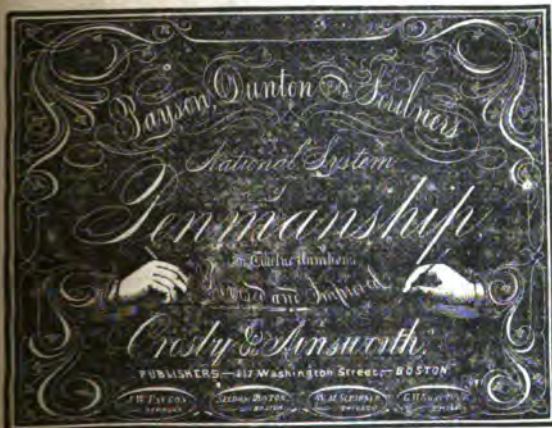 Payson, Dunton &
National System
of
Penmanship.
In Twelve Numbers
Revised and Improved
Crosby & Ainsworth.
PUBLISHERS—117 Washington Street,—BOSTON
J.W. PAYSON, DUNTON, W.M. SCRIBNER
BOSTON CHICAGO